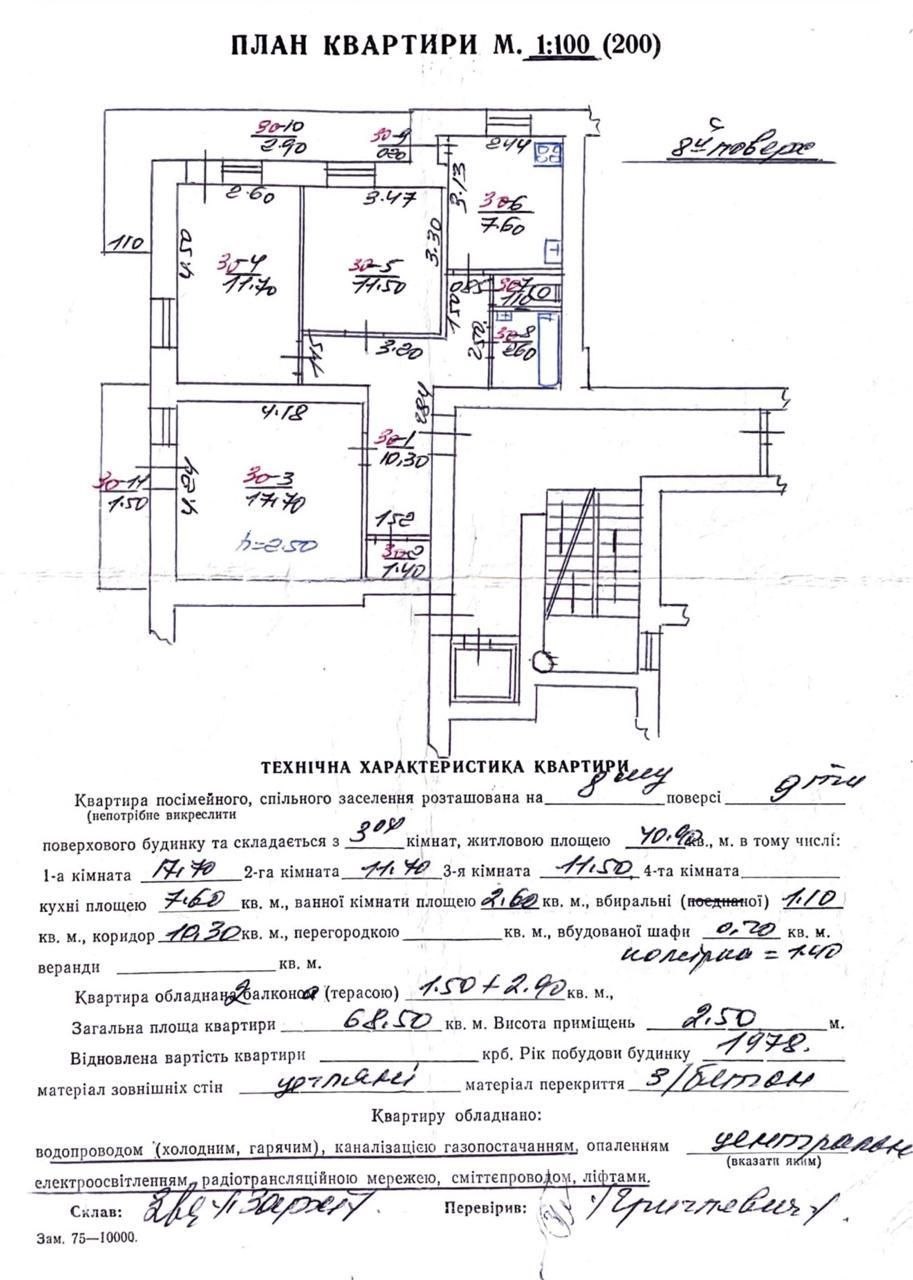 ПЛАН КВАРТИРИ М. 1:100 (200)
8й поверх
30-10
2.90
30-9
0.20
2.44
2.60
3.47
3.13
30-6
7.60
110
4.50
30-4
11.70
30-5
11.50
3.30
0.85
30-7
1.10
1.50
30-8
2.60
2.50
1.15
3.20
4.18
2.84
30-1
10.30
30-11
1.50
4.24
30-3
17.70
h=2.50
1.52
30-2
1.40
ТЕХНІЧНА ХАРАКТЕРИСТИКА КВАРТИРИ
Квартира посімейного, спільного заселення розташована на 8му поверсі 9ти
(непотрібне викреслити
поверхового будинку та складається з 3ох кімнат, житловою площею 40.90 кв., м. в тому числі:
1-а кімната 17.70 2-га кімната 11.70 3-я кімната 11.50 4-та кімната
кухні площею 7.60 кв. м., ванної кімнати площею 2.60 кв. м., вбиральні (поєднаної) 1.10
кв. м., коридор 10.30 кв. м., перегородкою кв. м., вбудованої шафи 0.20 кв. м.
веранди кв. м. комірка = 1.40
Квартира обладнана 2 балконом (терасою) 1.50 + 2.90 кв. м.,
Загальна площа квартири 68.50 кв. м. Висота приміщень 2.50 м.
Відновлена вартість квартири крб. Рік побудови будинку 1978.
матеріал зовнішніх стін цегляні матеріал перекриття З/бетон
Квартиру обладнано:
водопроводом (холодним, гарячим), каналізацією газопостачанням, опаленням централь
(вказати яким)
електроосвітленням, радіотрансляційною мережею, сміттєпроводом, ліфтами.
Склав:
Перевірив:
Зам. 75—10000.